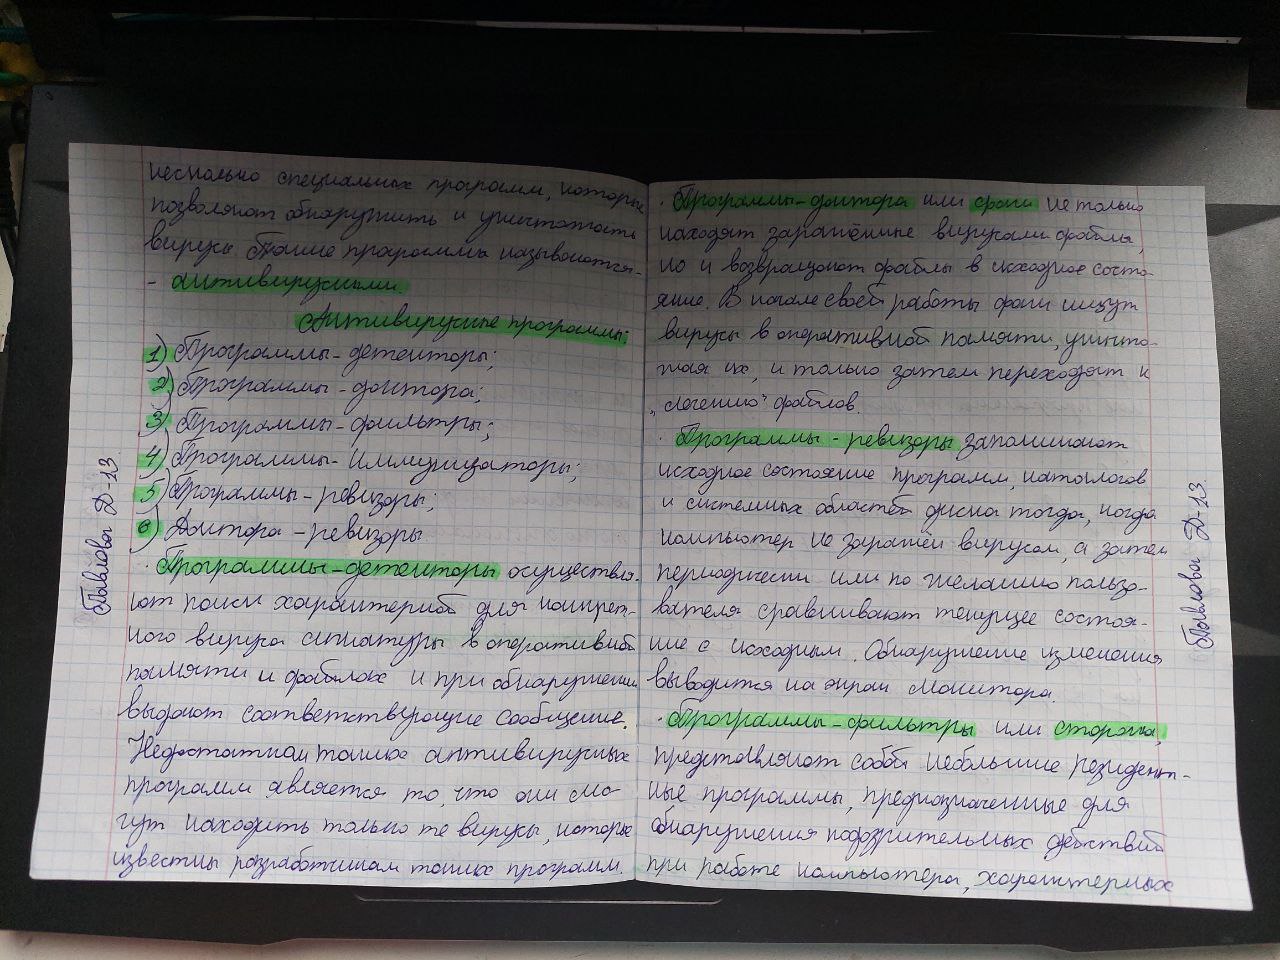 несколько специальных программ, которые
позволяют обнаружить и уничтожать
вирусы. Такие программы называются -
- антивирусными.
Антивирусные программы:
1) Программы-детекторы;
2) Программы-доктора;
3) Программы-фильтры;
4) Программы-иммунизаторы;
5) Программы-ревизоры;
6) Доктора-ревизоры
· Программы-детекторы осуществля-
ют поиск характерной для конкрет-
ного вируса сигнатуры в оперативной
памяти и файлах и при обнаружении
выдают соответствующие сообщение.
Недостатком таких антивирусных
программ является то, что они мо-
гут находить только те вирусы, которые
известны разработчикам таких программ.
Павлова Д-13
· Программы-доктора или фаги не только
находят заражённые вирусами файлы,
но и возвращают файлы в исходное состо-
яние. В начале своей работы фаги ищут
вирусы в оперативной памяти, уничто-
жая их, и только затем переходят к
„лечению" файлов.
· Программы-ревизоры запоминают
исходное состояние программ, каталогов
и системных областей диска тогда, когда
компьютер не заражён вирусом, а затем
периодически или по желанию пользо-
вателя сравнивают текущее состоя-
ние с исходным. Обнаружение изменения
выводится на экран монитора.
· Программы-фильтры или сторожа,
представляют собой небольшие резидент-
ные программы, предназначенные для
обнаружения подозрительных действий
при работе компьютера, характерных
Павлова Д-13